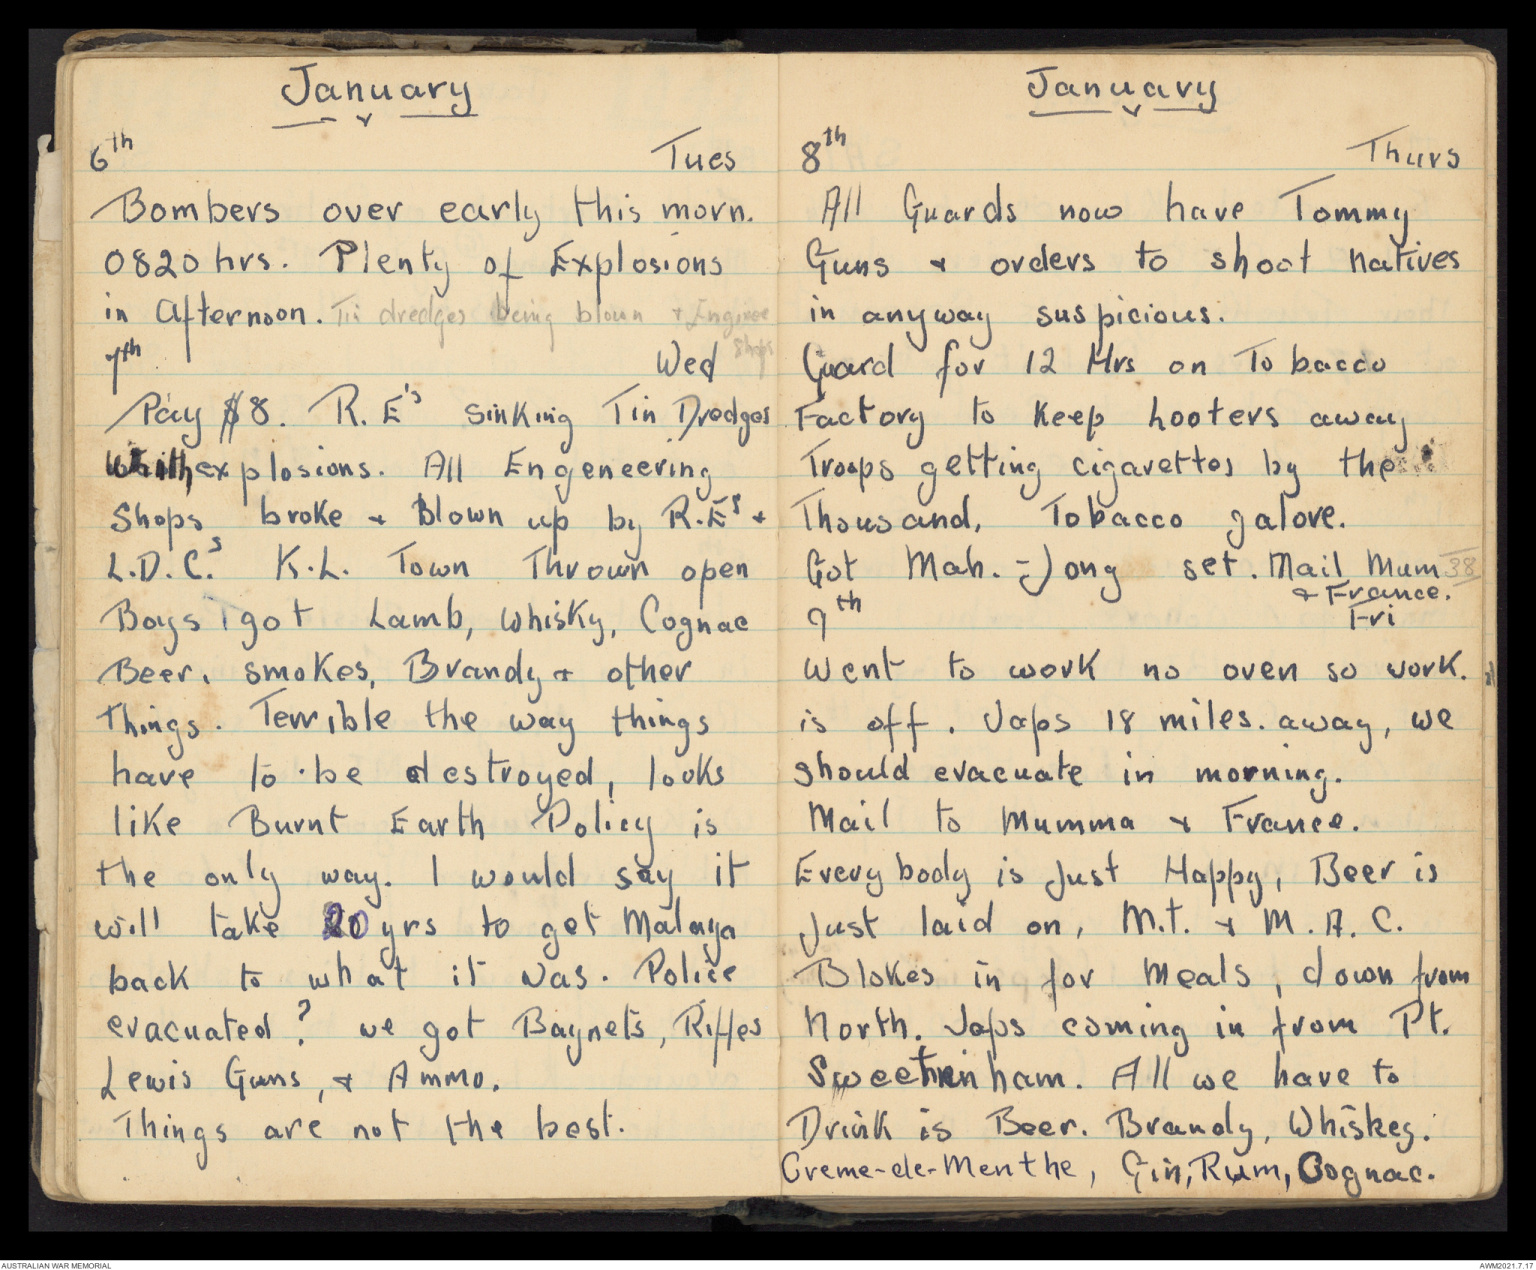 January
6th Tues
Bombers over early this morn.
0820 hrs. Plenty of Explosions
in Afternoon. Tin dredges being blown + Enginee
Shops
7th Wed
Pay $8. R.E's sinking Tin Dredges
Whith explosions. All Engeneering
Shops broke + Blown up by R.E's +
L.D.C.s K.L. Town Thrown open
Boys got Lamb, Whisky, Cognac
Beer, smokes, Brandy + other
things. Terrible the way things
have to be destroyed, looks
like Burnt Earth Policy is
the only way. I would say it
will take 20 yrs to get Malaya
back to what it was. Police
evacuated? we got Baynets, Rifles
Lewis Guns, + Ammo.
Things are not the best.
January
8th Thurs
All Guards now have Tommy
Guns + orders to shoot natives
in anyway suspicious.
Guard for 12 Hrs on Tobacco
Factory to keep hooters away
Troops getting cigarettes by the
Thousand, Tobacco galore.
Got Mah-Jong set. Mail Mum 38
+ France.
9th Fri
Went to work no oven so work.
is off. Japs 18 miles. away, we
should evacuate in morning.
Mail to Mumma + France.
Everybody is Just Happy, Beer is
Just laid on, M.T. + M.A.C.
Blokes in for Meals, down from
North. Japs coming in from Pt.
Sweetenham. All we have to
Drink is Beer. Brandy, Whiskey.
Creme-de-Menthe, Gin, Rum, Cognac.
AUSTRALIAN WAR MEMORIAL AWM2021.7.17